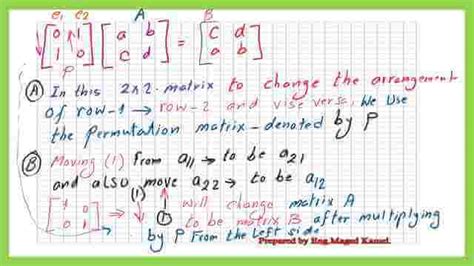 e1 e2 A B
[0 1 [a b = [c d
1 0] c d] a b]
P
(A) In this 2x2-matrix to change the arrangement
of row-1 → row-2 and vise versa, We Use
the permutation matrix-denoted by P
(B) Moving (1) From a11 → to be a21
and also move a22 → to be a12
[1 0 ⇒ (1) ↓ ↑ (1) will change matrix A
0 1] to be matrix B after multiplying
by P From the Left side
Prepared by Eng.Maged Kamel.